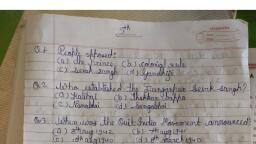 5th
Q.1 People opposed:
(a) the prince (b) colonial rule
(c) Sevak Sangh (d) Gandhiji
Q.2 Who established the Dungarpur Sevak Sangh?
(a) Kalibai (b) Thakkar Bappa
(c) Nanabhai (d) Sengabhai
Q.3 When was the Quit India Movement announced?
(a) 8th Aug 1942 (b) 7th Aug 1941
(c) 1940 (d) 8th March 1940